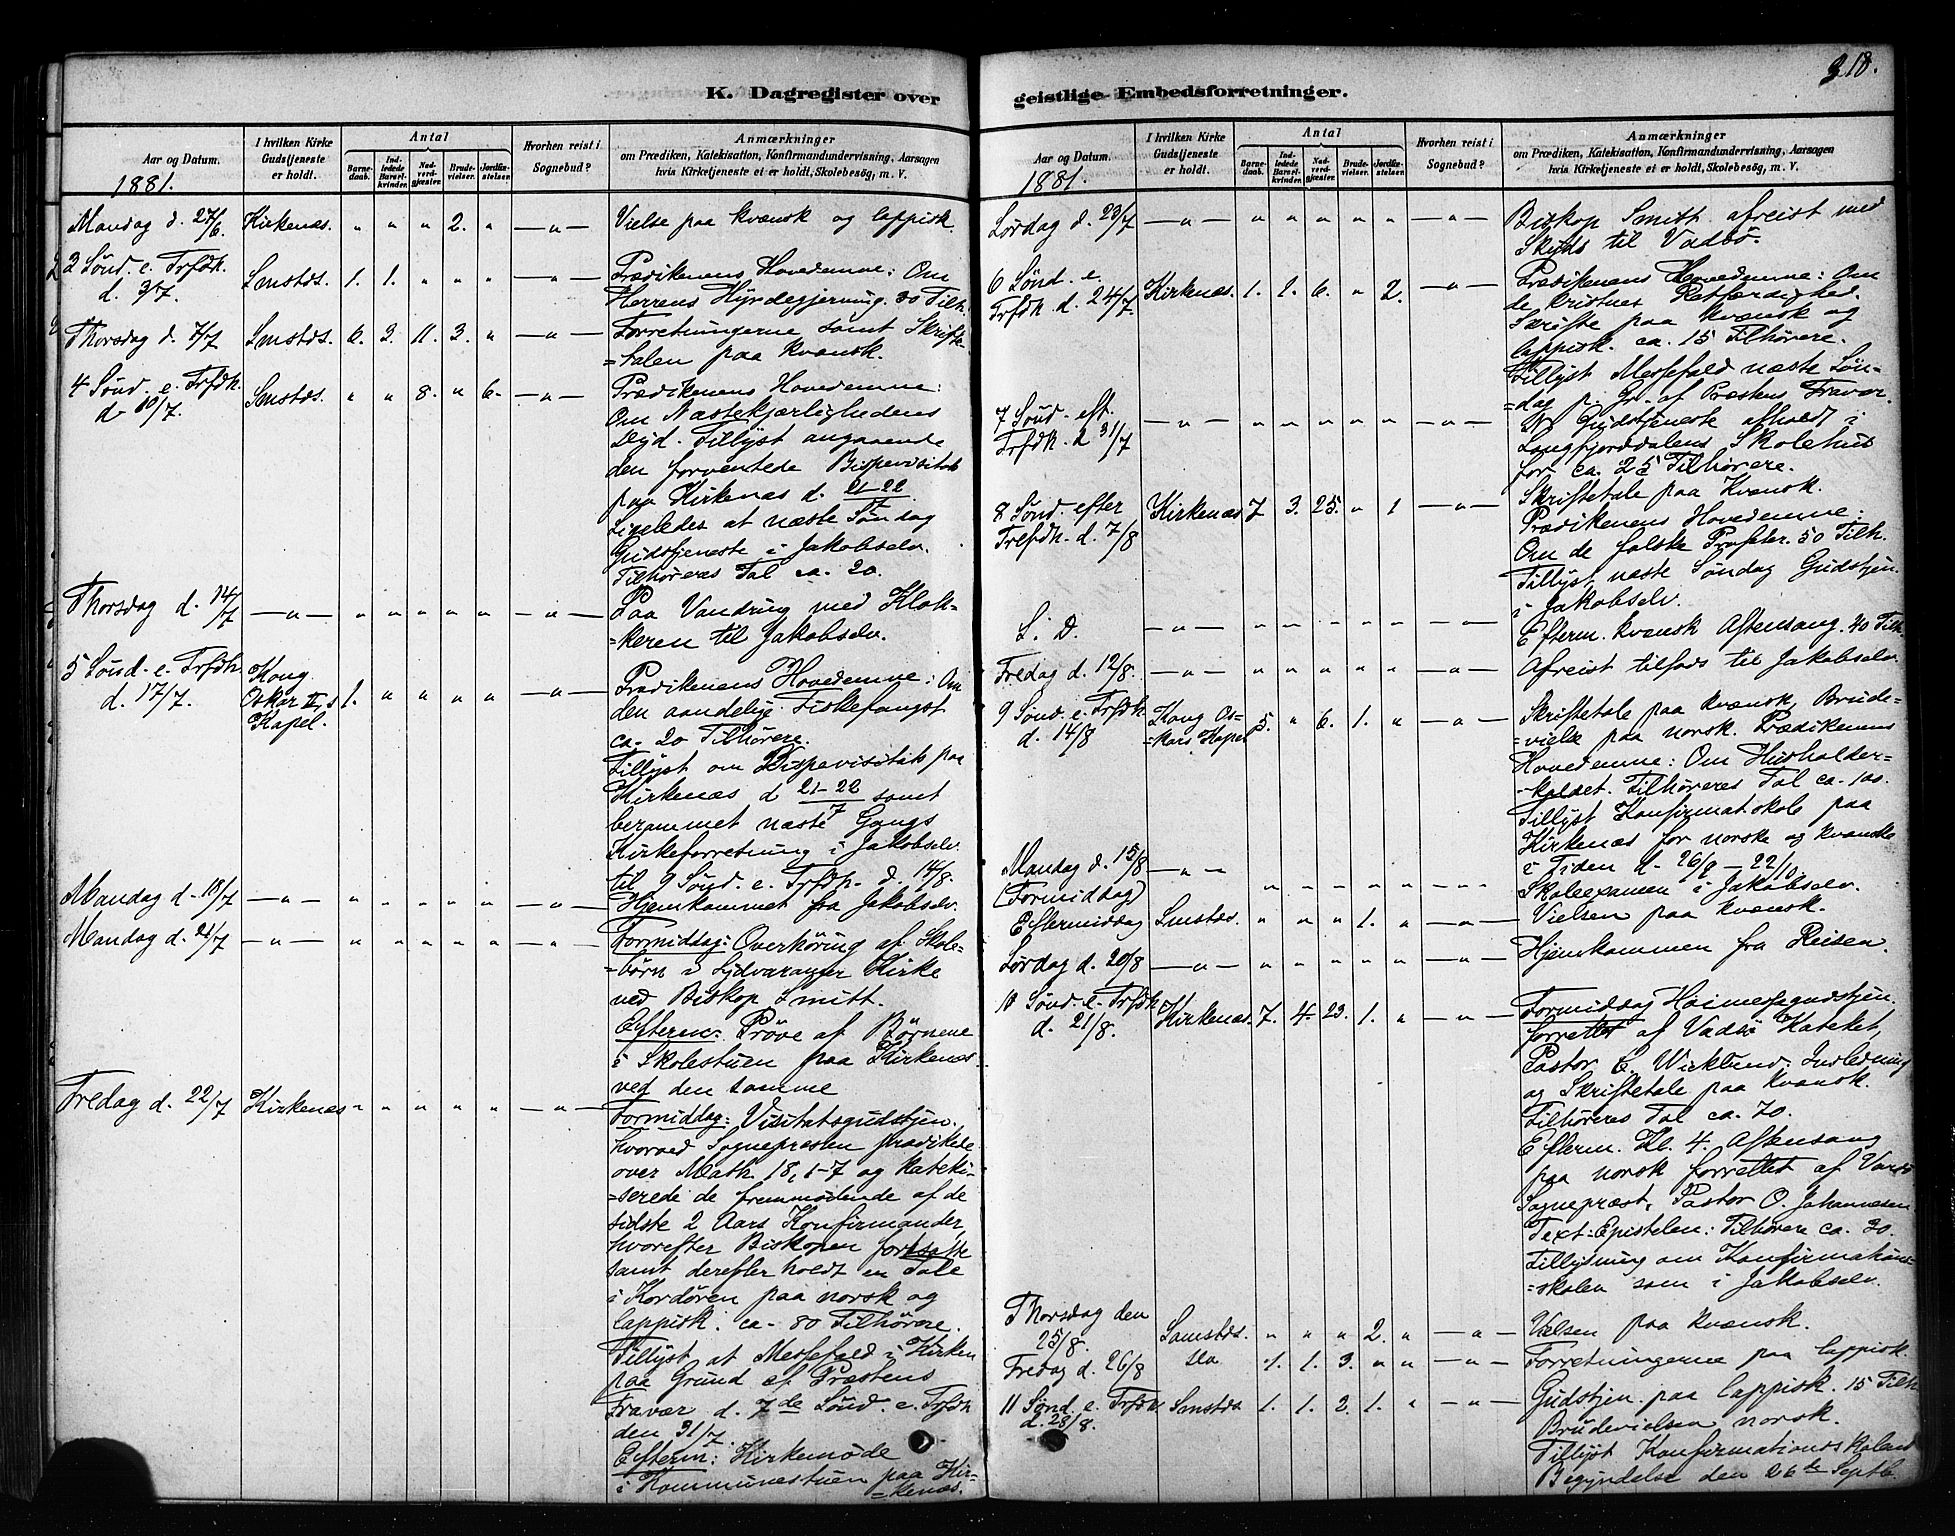 K. Dagregister over
Aar og Datum.
I hvilken Kirke Gudstjeneste er holdt.
Antal
Barnedaab.
Indledede Barselkvinder.
Nadverdgjæster.
Brudevielser.
Jordfæstelser.
Hvorhen reist i Sognebud?
Anmærkninger
om Prædiken, Katekisation, Konfirmandundervisning, Aarsagen
hvis Kirketjeneste ei er holdt, Skolebesøg, m. V.
1881.
Mandag d. 27/6. Kirkenæs. " " " 2. " — " — Vielse paa kvænsk og lappisk.
3 Sønd. e. Trfdh. Smstds. 1. 1. " " " — " — Prædikenens Hovedemne: Om
d. 3/7. Herrens Hyrdegjerning. 30 Tilh.
Thorsdag d. 7/7 Smstds. 6. 3. 11. 3. " — " — Forretningerne samt Skrifte-
=talen paa kvænsk.
4 Sønd. e. Trfdh. Smstds. " " 8. " 6. — " — Prædikenens Hovedemne:
d. 10/7. Om Næstekjærlighedens
Dyd. Tillyst angaaende
den forventede Bispevisitats
paa Kirkenæs d. 21-22/7
Ligeledes at næste Søndag
Gudstjeneste i Jakobselv.
Tilhøreres Tal ca. 20.
Thorsdag d. 14/7 — " — " " " " " — " — Paa Vandring med Klok-
=keren til Jakobselv.
5 Sønd. e. Trfdh. Kong Prædikenens Hovedemne: Om
d. 17/7. Oskar II,s 1. " " " " — " — den aandelige Fiskefangst
Kapel. ca. 20 Tilhørere.
Tillyst om Bispevisitats paa
Kirkenæs d 21-22/7 samt
berammet næste Gangs
Kirkeforretning i Jakobselv
til 9 Sønd. e. Trfdh. d. 14/8.
Mandag d. 18/7 — " — " " " " " — " — Hjemkommet fra Jakobselv.
Mandag d. 21/7 — " — " " " " " — " — Formiddag: Overhøring af Skole-
=børn i Sydvaranger Kirke
ved Biskop Smitt.
Efterm: Prøve af Børnene
i Skolestuen paa Kirkenæs
ved den samme
Fredag d. 22/7 Kirkenæs " " " " " — " — Formiddag: Visitatsgudstjen.
hvorved Sognepresten prædikede
over Math. 18, 1-7 og kateki-
=serede de fremmødende af de
sidste 2 Aars Konfirmander,
hvorefter Biskopen fortsatte
samt derefter holdt en Tale
i Kordøren paa norsk og
lappisk. ca. 80 Tilhørere.
Tillyst at Messefald i Kirken
paa Grund af Præstens
Fravær d. 7de Sønd. e. Trfdh
den 31/7.
Efterm: Kirkemøde
i Kommunestuen paa Kir-
=kenæs.
geistlige Embedsforretninger.
318.
Aar og Datum.
I hvilken Kirke Gudstjeneste er holdt.
Antal
Barnedaab.
Indledede Barselkvinder.
Nadverdgjæster.
Brudevielser.
Jordfæstelser.
Hvorhen reist i Sognebud?
Anmærkninger
om Prædiken, Katekisation, Konfirmandundervisning, Aarsagen
hvis Kirketjeneste et er holdt, Skolebesøg, m. V.
1881.
Lørdag d. 23/7 — " — " " " " " — " — Biskop Smitt afreist med
Skyds til Vadsø.
6 Sønd. e. Kirkenæs. 1. 1. 6. " 2. — " — Prædikenens Hovedemne: Om
Trfdh d. 24/7. de kristnes Retfærdighed.
Skrifte paa kvænsk og
lappisk. ca. 15 Tilhørere.
Tillyst Messefald næste Søn-
=dag p. Gr. af Præstens Fravær.
7 Sønd. eft. — " — " " " " " — " — Gudstjeneste afholdt i
Trfdh. d 31/7 Langfjorddalens Skolehus
for ca. 25 Tilhørere.
8 Sønd. efter Kirkenæs 7 3. 25. " 1 — " — Skriftetale paa Kvænsk.
Trefdh. d. 7/8 Prædikenens Hovedemne:
Om de falske Profeter. 50 Tilh.
Tillyst næste Søndag Gudstjen.
i Jakobselv.
S. D. — " — " " " " " — " — Efterm. kvænsk Aftensang. 40 Tilh.
Fredag d. 12/8. — " — " " " " " — " — Afreist tilfods til Jakobselv.
9 Sønd. e. Trfdh. Kong Os- 5. " 6. 1. " — " — Skriftetale paa kvænsk, Brude-
d. 14/8 =kars Kapel =vielse paa norsk. Prædikenens
Hovedemne: Om Husholder-
=kaldet. Tilhøreres Tal ca. 100.
Tillyst Konfirmat.skole paa
Kirkenæs for norske og kvænske
i Tiden d. 26/9 — 22/10
Mandag d. 15/8 — " — " " " " " Skoleexamen i Jakobselv.
(Formiddag)
Eftermiddag Smstds. " " " 1. " — " — Vielsen paa kvænsk.
Lørdag d. 20/8 — " — " " " " " — " — Hjemkommen fra Reisen.
10 Sønd. e. Trfdh Kirkenæs. 7. 4. 23. 1. " — " — Formiddag Høimessegudstjen.
d. 21/8. forrettet af Vadsø Kateket,
Pastor C. Wiklund: Indledning
og Skriftetale paa kvænsk.
Tilhøreres Tal ca. 70.
Efterm. Kl. 4. Aftensang
paa norsk forrettet af Vardø
Sognepræst, Pastor O. Johannesen
Text=Epistelen: Tilhørere ca. 30.
Tillysning om Konfirmations-
=skolen som i Jakobselv.
Thorsdag den 25/8. Samstds. " " " 2. " — " — Vielsen paa kvænsk.
Fredag d. 26/8 1. 1. 3. " " — " — Forretningerne paa lappisk.
11 Sønd. e. Trfdh Smstds 1. 1. 2. 1. " — " — Gudstjen. paa lappisk. 15 Tilh
d. 28/8. Brudevielsen norsk.
Tillyst Konfirmationsskolens
Begyndelse den 26te Septb.